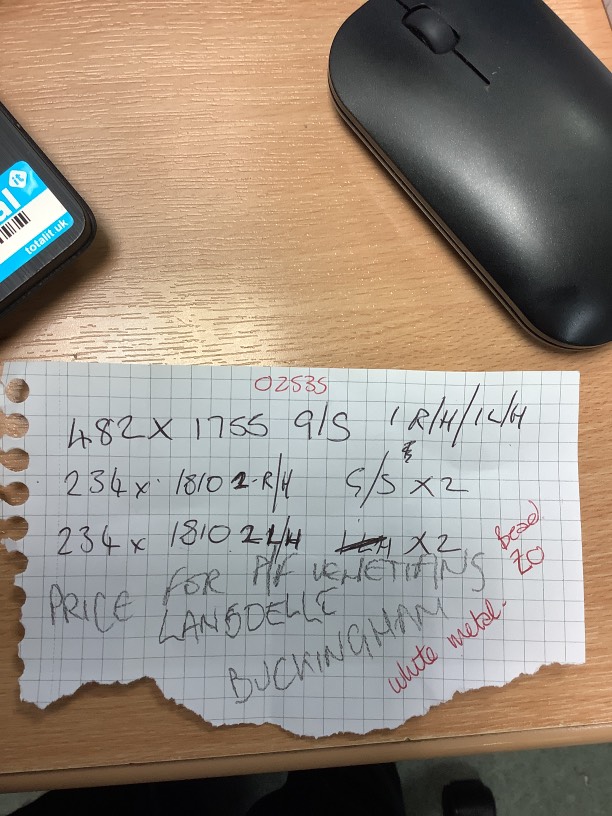 al it
totalit uk
02535
482 x 1755 G/S 1 R/H/1L/H
234 x 1810 2-R/H S/S x2
234 x 1810 2 L/H x2
PRICE FOR P/F VENETIANS
LANSDELLE
BUCKINGHAM
Bead
20
white metal